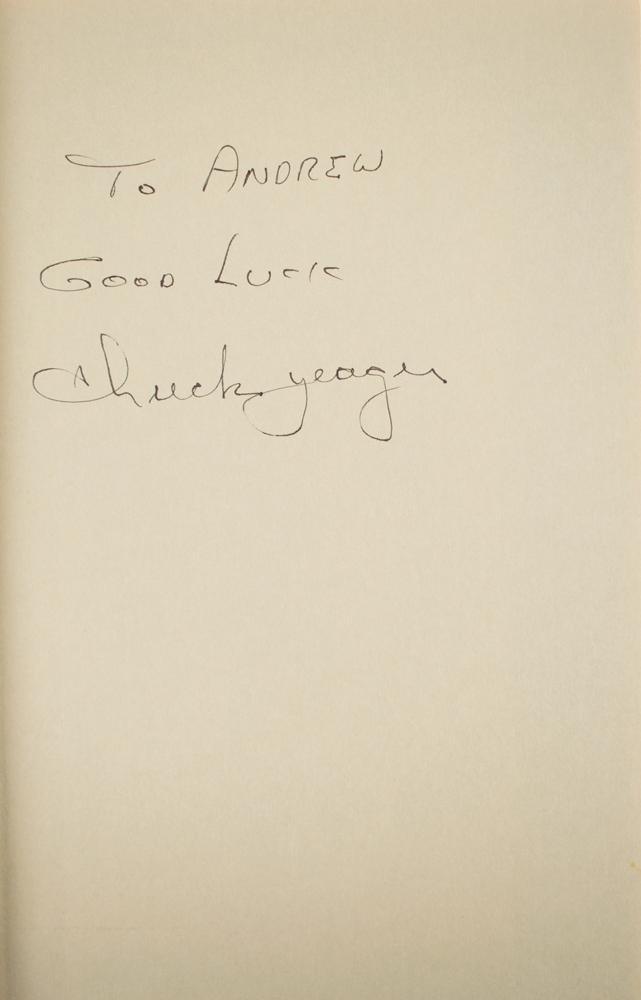 To ANDREW
GOOD LUCK
Chuck Yeager